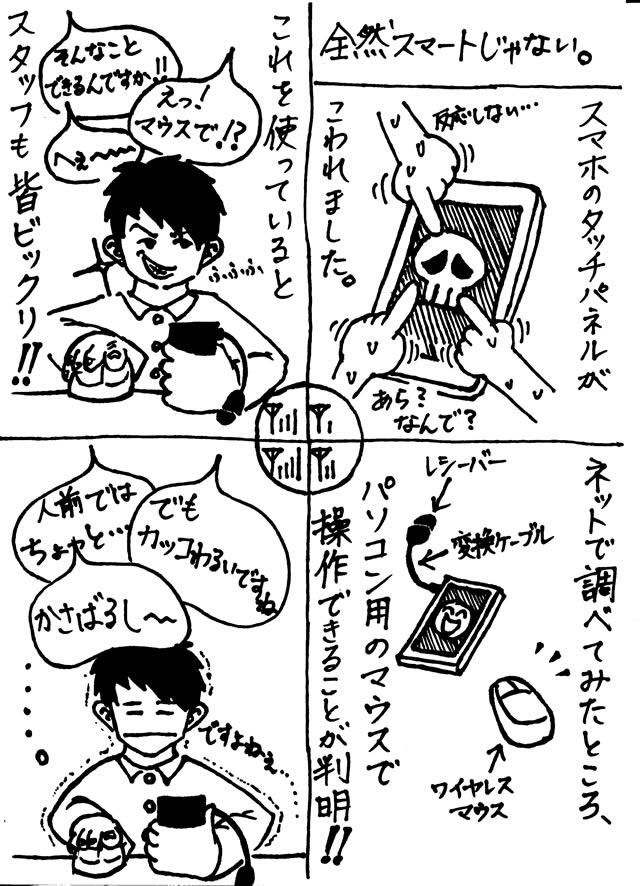 全然スマートじゃない。
スマホのタッチパネルが
こわれました。
反応しない…
あら?
なんで?
ネットで調べてみたところ、
パソコン用のマウスで
操作できることが判明!!
レシーバー
変換ケーブル
ワイヤレス
マウス
これを使っていると
スタッフも皆ビックリ!!
えっ!
マウスで!?
そんなこと
できるんですか!!
へぇ〜〜
ふふふふ
でも
カッコわるいですね
人前では
ちょっと…
かさばるし〜
ですよねぇ…